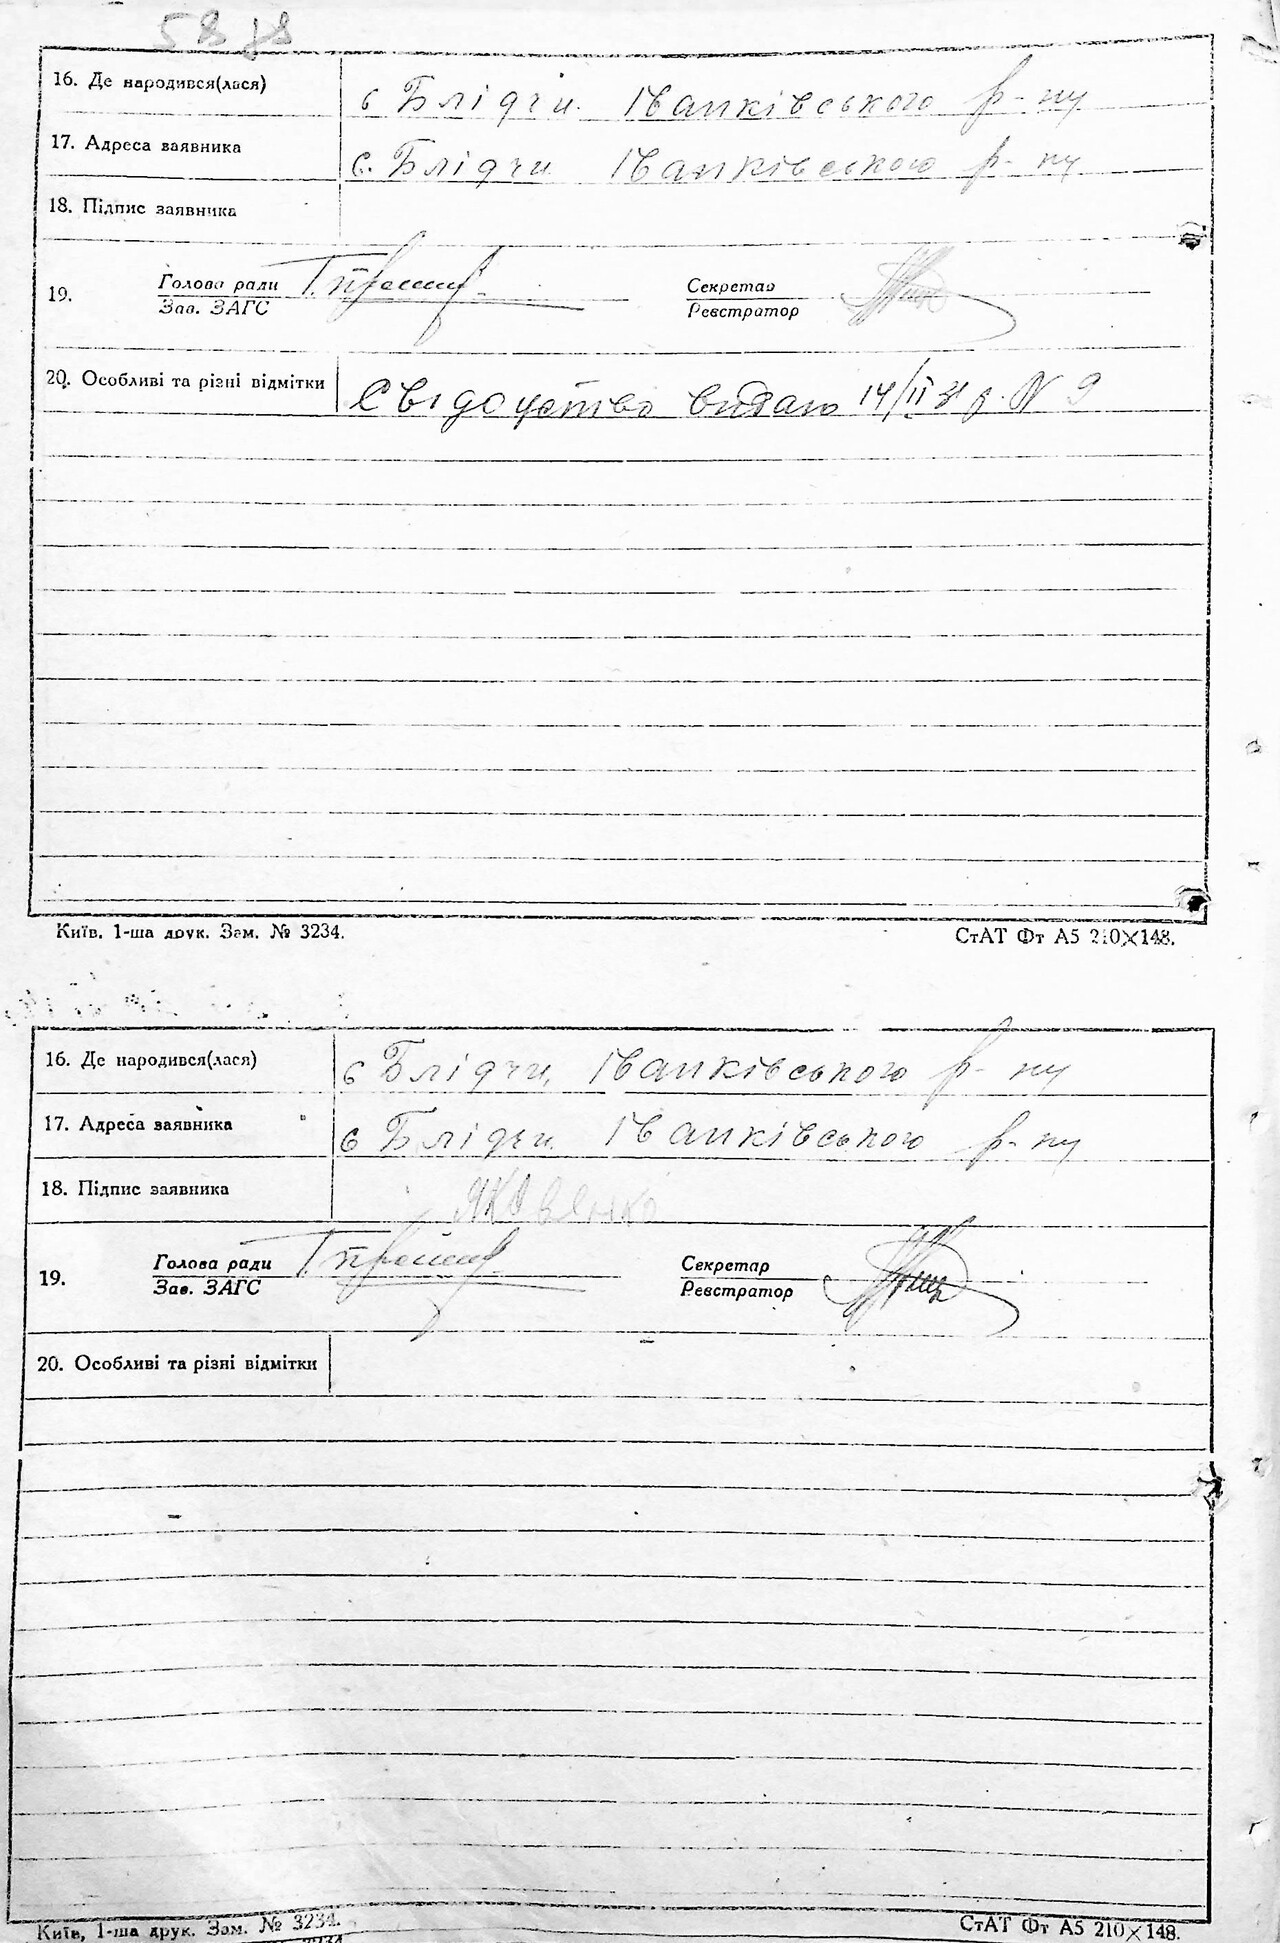 58 зв
16. Де народився(лася) с Блідчи. Іванківського р-ну
17. Адреса заявника с. Блідчи Іванківського р-ну
18. Підпис заявника
19. Голова ради Секретар
Зав. ЗАГС Реєстратор
20. Особливі та різні відмітки Свідоцтво видано 14/II 31 р. N 9
Київ. 1-ша друк. Зам. № 3234. СтАТ Фт А5 210×148.
16. Де народився(лася) с Блідчи. Іванківського р-ну
17. Адреса заявника с Блідчи. Іванківського р-ну
18. Підпис заявника Яковенко
19. Голова ради Секретар
Зав. ЗАГС Реєстратор
20. Особливі та різні відмітки
Київ, 1-ша друк. Зам. № 3234. СтАТ Фт А5 210×148.
3234